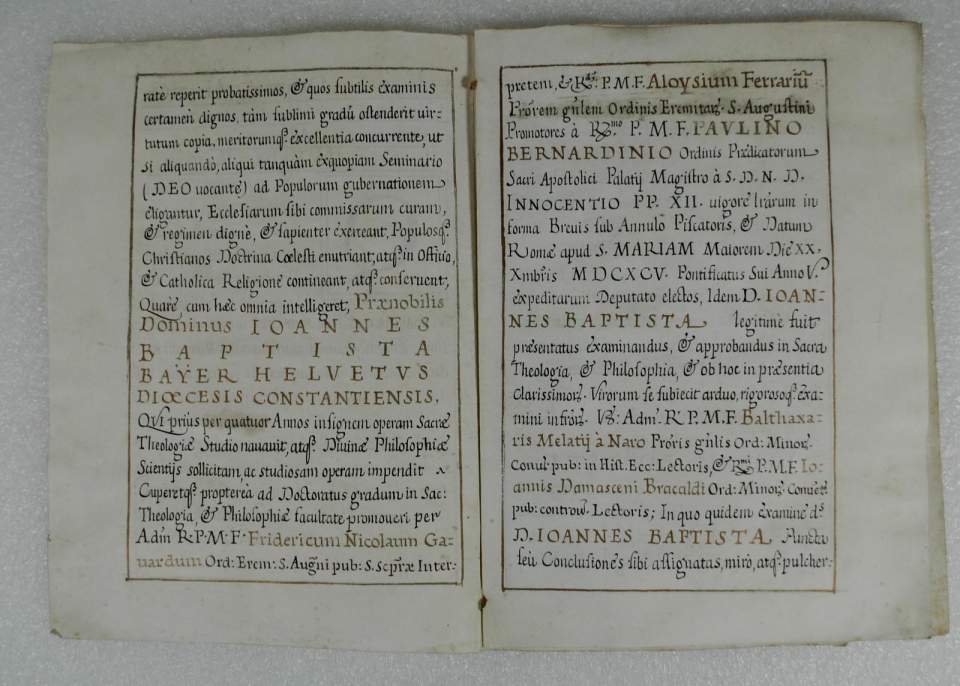 ratè reperit probatissimos, & quos subtilis examinis
certamen dignos, tàm sublimi gradú ostenderit uir-
tutum copia, meritorumq; excellentia concurrente, ut
si aliquandò, aliqui tanquàm exquopiam Seminario
(DEO uocante) ad Populorum gubernationem
eligantur, Ecclesiarum sibi commissarum curam,
& regimen dignè, & sapienter exerceant, Populosq;
Christianos Doctrina Coelesti enutriant; atq; in Ostiuio,
& Catholica Religione contineant, atq; conseruent;
Quare cum hæc omnia intelligeret; Prænobilis
Dominus IOANNES
BAPTISTA
BAŸER HELVETVS
DIOECESIS CONSTANTIENSIS,
QVI priùs per quatuor Annos insignem operam Sacræ
Theologiæ Studio nauauit, atq; Diuinæ Philosophiæ
Scientijs sollicitam, ac studiosam operam impendit
Cuperetq; propterèa ad Doctoratus gradum in Sac:
Theologia, & Philosophiæ facultate promoueri per
Adm R. P. M. F. Fridericum Nicolaum Ga-
uardum Ord: Erem: S. Augñi pub: S. Scpræ Inter-
pretem, & P. M. F. Aloysium Ferrariũ
Priorem gñlem Ordinis Eremitar. S. Augustini
Promotores à Rmo P. M. F. PAVLINO
BERNARDINIO Ordinis Prædicatorum
Sacri Apostolici Palatij Magistro à S. D. N. D.
INNOCENTIO PP. XII. uigore lrarum in
forma Breuis sub Annulo Piscatoris, & Datum
Romæ apud S. MARIAM Maiorem Die XX.
Xmbris MDCXCV. Pontificatus Sui Anno V.
expeditarum Deputato electos, Idem D. IOAN-
NES BAPTISTA legitimè fuit
præsentatus examinandus, & approbandus in Sacra
Theologia, & Philosophia, & ob hoc in præsentia
Clarissimor. Virorum se subiecit arduo, rigorosoq; exa-
mini infror. Adm. R. P. M. F. Balthaxa-
ris Melatij à Naro Prioris gñlis Ord: Minor.
Conul pub: in Hist. Ecc: Lectoris, & P. M. F. Io-
annis Damasceni Bracaldi Ord: Minor. Conuẽt
pub: controu. Lectoris; In quo quidem examine ds
D. IOANNES BAPTISTA Puncta
seù Conclusiones sibi assignatas, mirò, atq; pulcher-